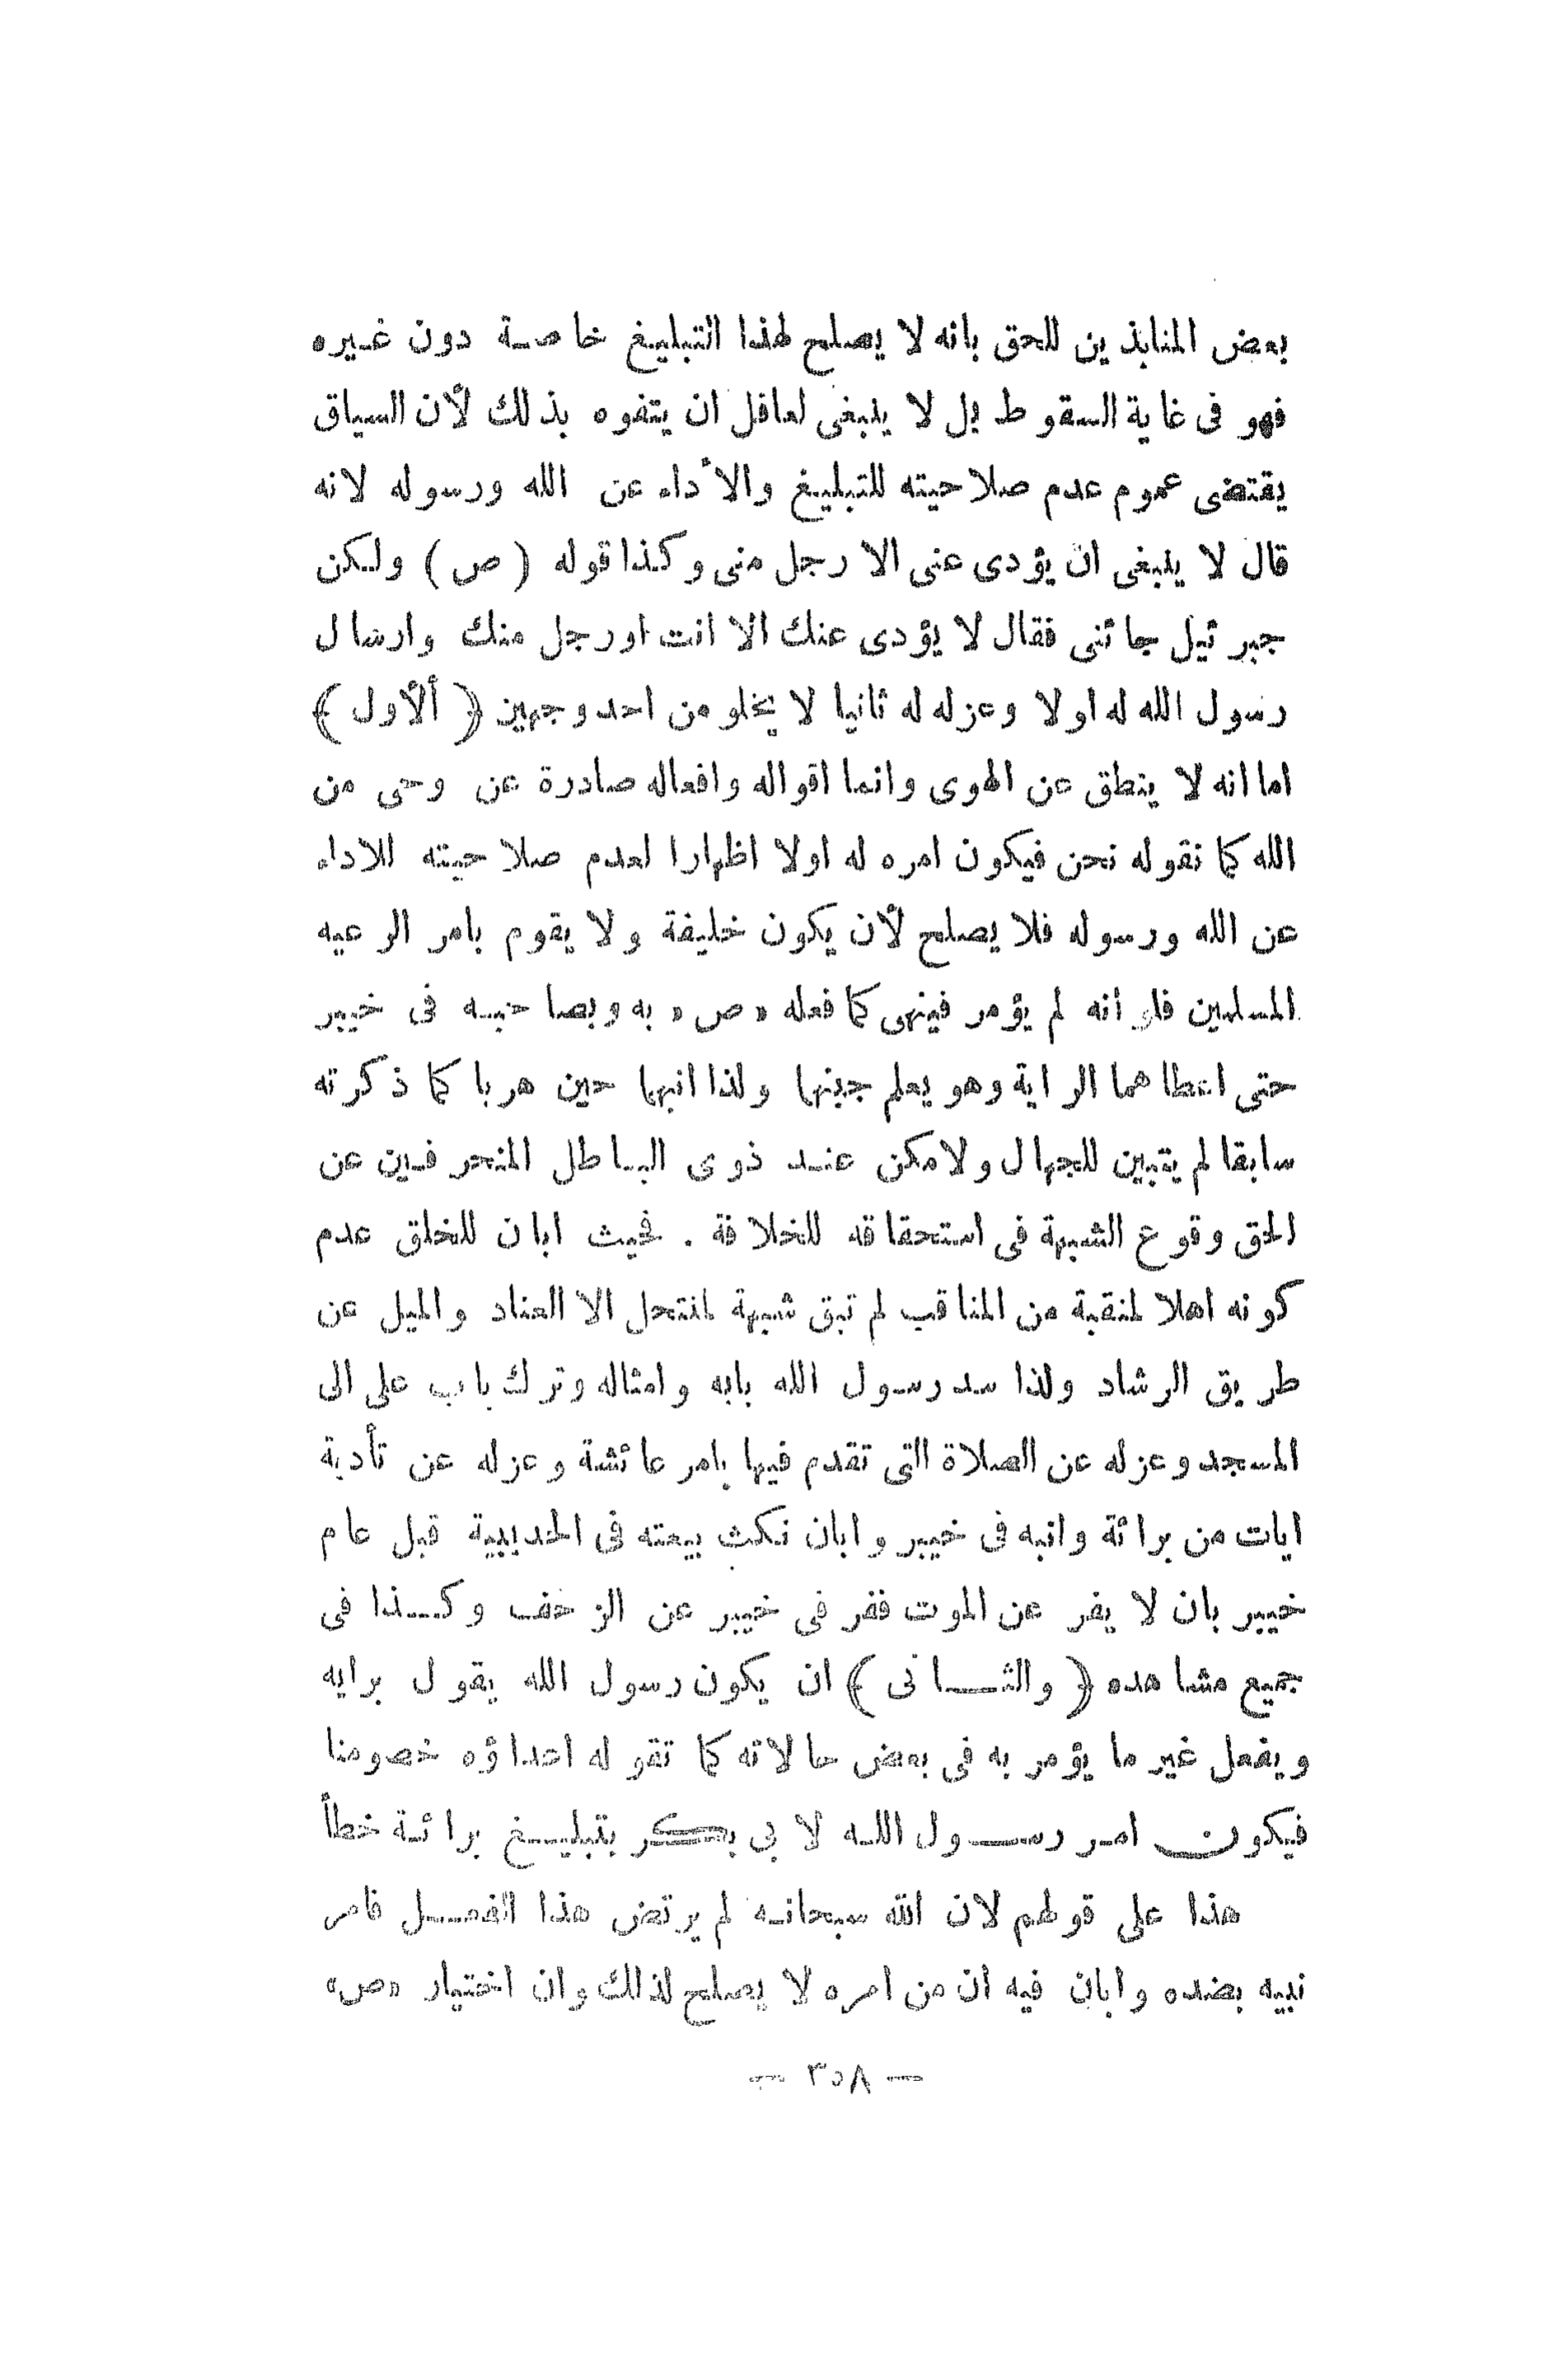 بعض المنابذين للحق بانه لا يصلح لهذا التبليغ خاصة دون غيره
فهو فى غاية السقوط بل لا ينبغى لعاقل ان يتفوه بذلك لأن السياق
يقتضى عموم عدم صلاحيته للتبليغ والأداء عن الله ورسوله لانه
قال لا ينبغى ان يؤدى عنى الا رجل منى وكذا قوله (ص) ولكن
جبرئيل جائنى فقال لا يؤدى عنك الا انت اورجل منك وارسال
رسول الله له اولا وعزله له ثانيا لا يخلو من احد وجهين ﴿ ألأول ﴾
اما انه لا ينطق عن الهوى وانما اقواله وافعاله صادرة عن وحى من
الله كما نقوله نحن فيكون امره له اولا اظهارا لعدم صلاحيته للاداء
عن الله ورسوله فلا يصلح لأن يكون خليفة ولا يقوم بامر الرعيه
المسلمين فلو انه لم يؤمر فينهى كما فعله «ص» به وبصاحبه فى خيبر
حتى اعطاهما الراية وهو يعلم جبنهما ولذا انبهما حين هربا كما ذكرته
سابقا لم يتبين للجهال ولامكن عند ذوى الباطل المنحرفين عن
الحق وقوع الشبهة فى استحقاقه للخلافة . فحيث ابان للخلق عدم
كونه اهلا لمنقبة من المناقب لم تبق شبهة لمنتحل الا العناد والميل عن
طريق الرشاد ولذا سد رسول الله بابه وامثاله وترك باب على الى
المسجد وعزله عن الصلاة التى تقدم فيها بامر عائشة وعزله عن تأدية
ايات من برائة وانبه فى خيبر وابان نكث بيعته فى الحديبية قبل عام
خيبر بان لا يفر عن الموت ففر فى خيبر عن الزحف وكذا فى
جميع مشاهده ﴿ والثانى ﴾ ان يكون رسول الله يقول برايه
ويفعل غير ما يؤمر به فى بعض حالاته كما تقوله اعداؤه خصومنا
فيكون امر رسول الله لابى بكر بتبليغ برائة خطأ
هذا على قولهم لان الله سبحانه لم يرتض هذا الفعل فامر
نبيه بضده وابان فيه ان من امره لا يصلح لذلك وان اختيار «ص»
— ٣٥٨ —